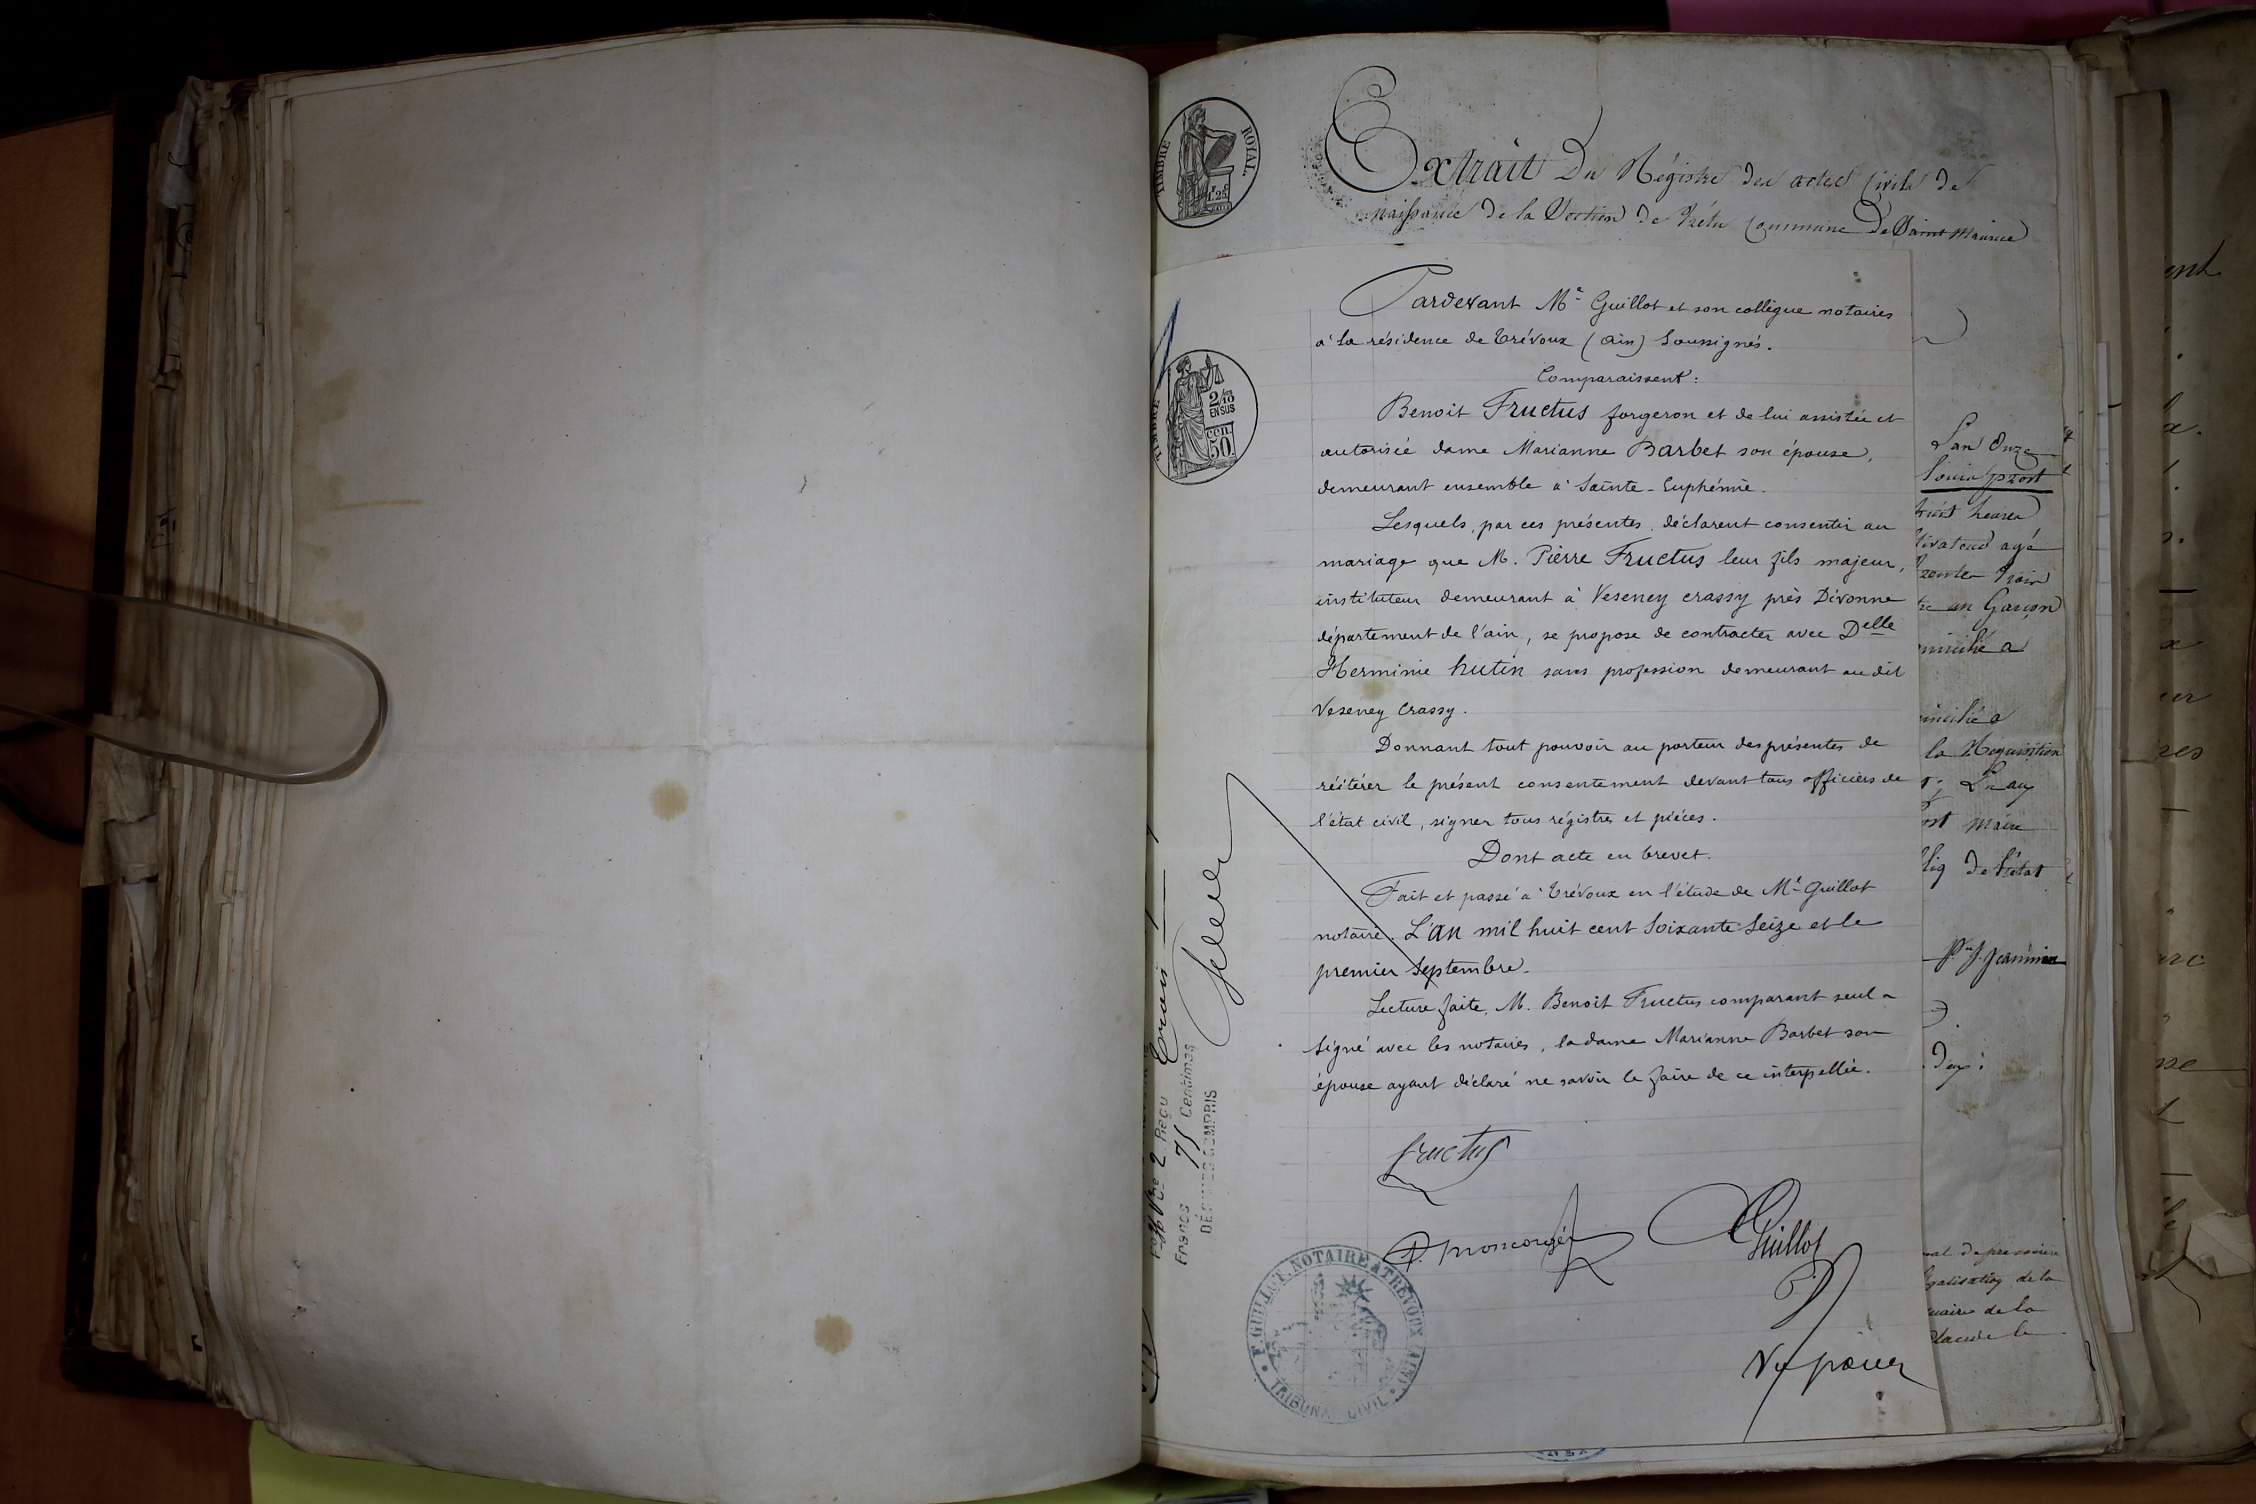 TIMBRE ROYAL
1F 25C
Extrait Du Régistre des actes Civils de
naissance de la Section de Commune De Saint Maurice
Pardevant Me Guillot et son collègue notaires
à la résidence de Trévoux (Ain) Soussignés.
Comparaissent:
Benoit Fructus forgeron et de lui assistée et
autorisée dame Marianne Barbet son épouse,
demeurant ensemble à Sainte-Euphémie.
Lesquels, par ces présentes, déclarent consentir au
mariage que M. Pierre Fructus leur fils majeur,
instituteur demeurant à Veseney Crassy près Divonne
département de l'ain, se propose de contracter avec Delle
Herminie hutin sans profession demeurant au dit
Veseney Crassy.
Donnant tout pouvoir au porteur des présentes de
réitérer le présent consentement devant tous officiers de
l'état civil, signer tous régistres et pièces.
Dont acte en brevet.
Fait et passé à Trévoux en l'étude de Me Guillot
notaire. L'an mil huit cent Soixante Seize et le
premier Septembre.
Lecture faite, M. Benoit Fructus comparant seul a
Signé avec les notaires, la dame Marianne Barbet son
épouse ayant déclaré ne savoir le faire de ce interpellée.
fructus
Guillot
TIMBRE
2/10 EN SUS
cen. 50
Reçu Trois
Francs 75 Centimes
DÉCIMES COMPRIS
F. GUILLOT. NOTAIRE à TRÉVOUX (AIN)
TRIBUNAL CIVIL
L'an Onze
Louis prost
huit heures
ltivateur agé
trente trois
un Garçon
omicilié a
micilié a
la Réquisition
st maire
de l'état
Jeannin
galisation de la
de la